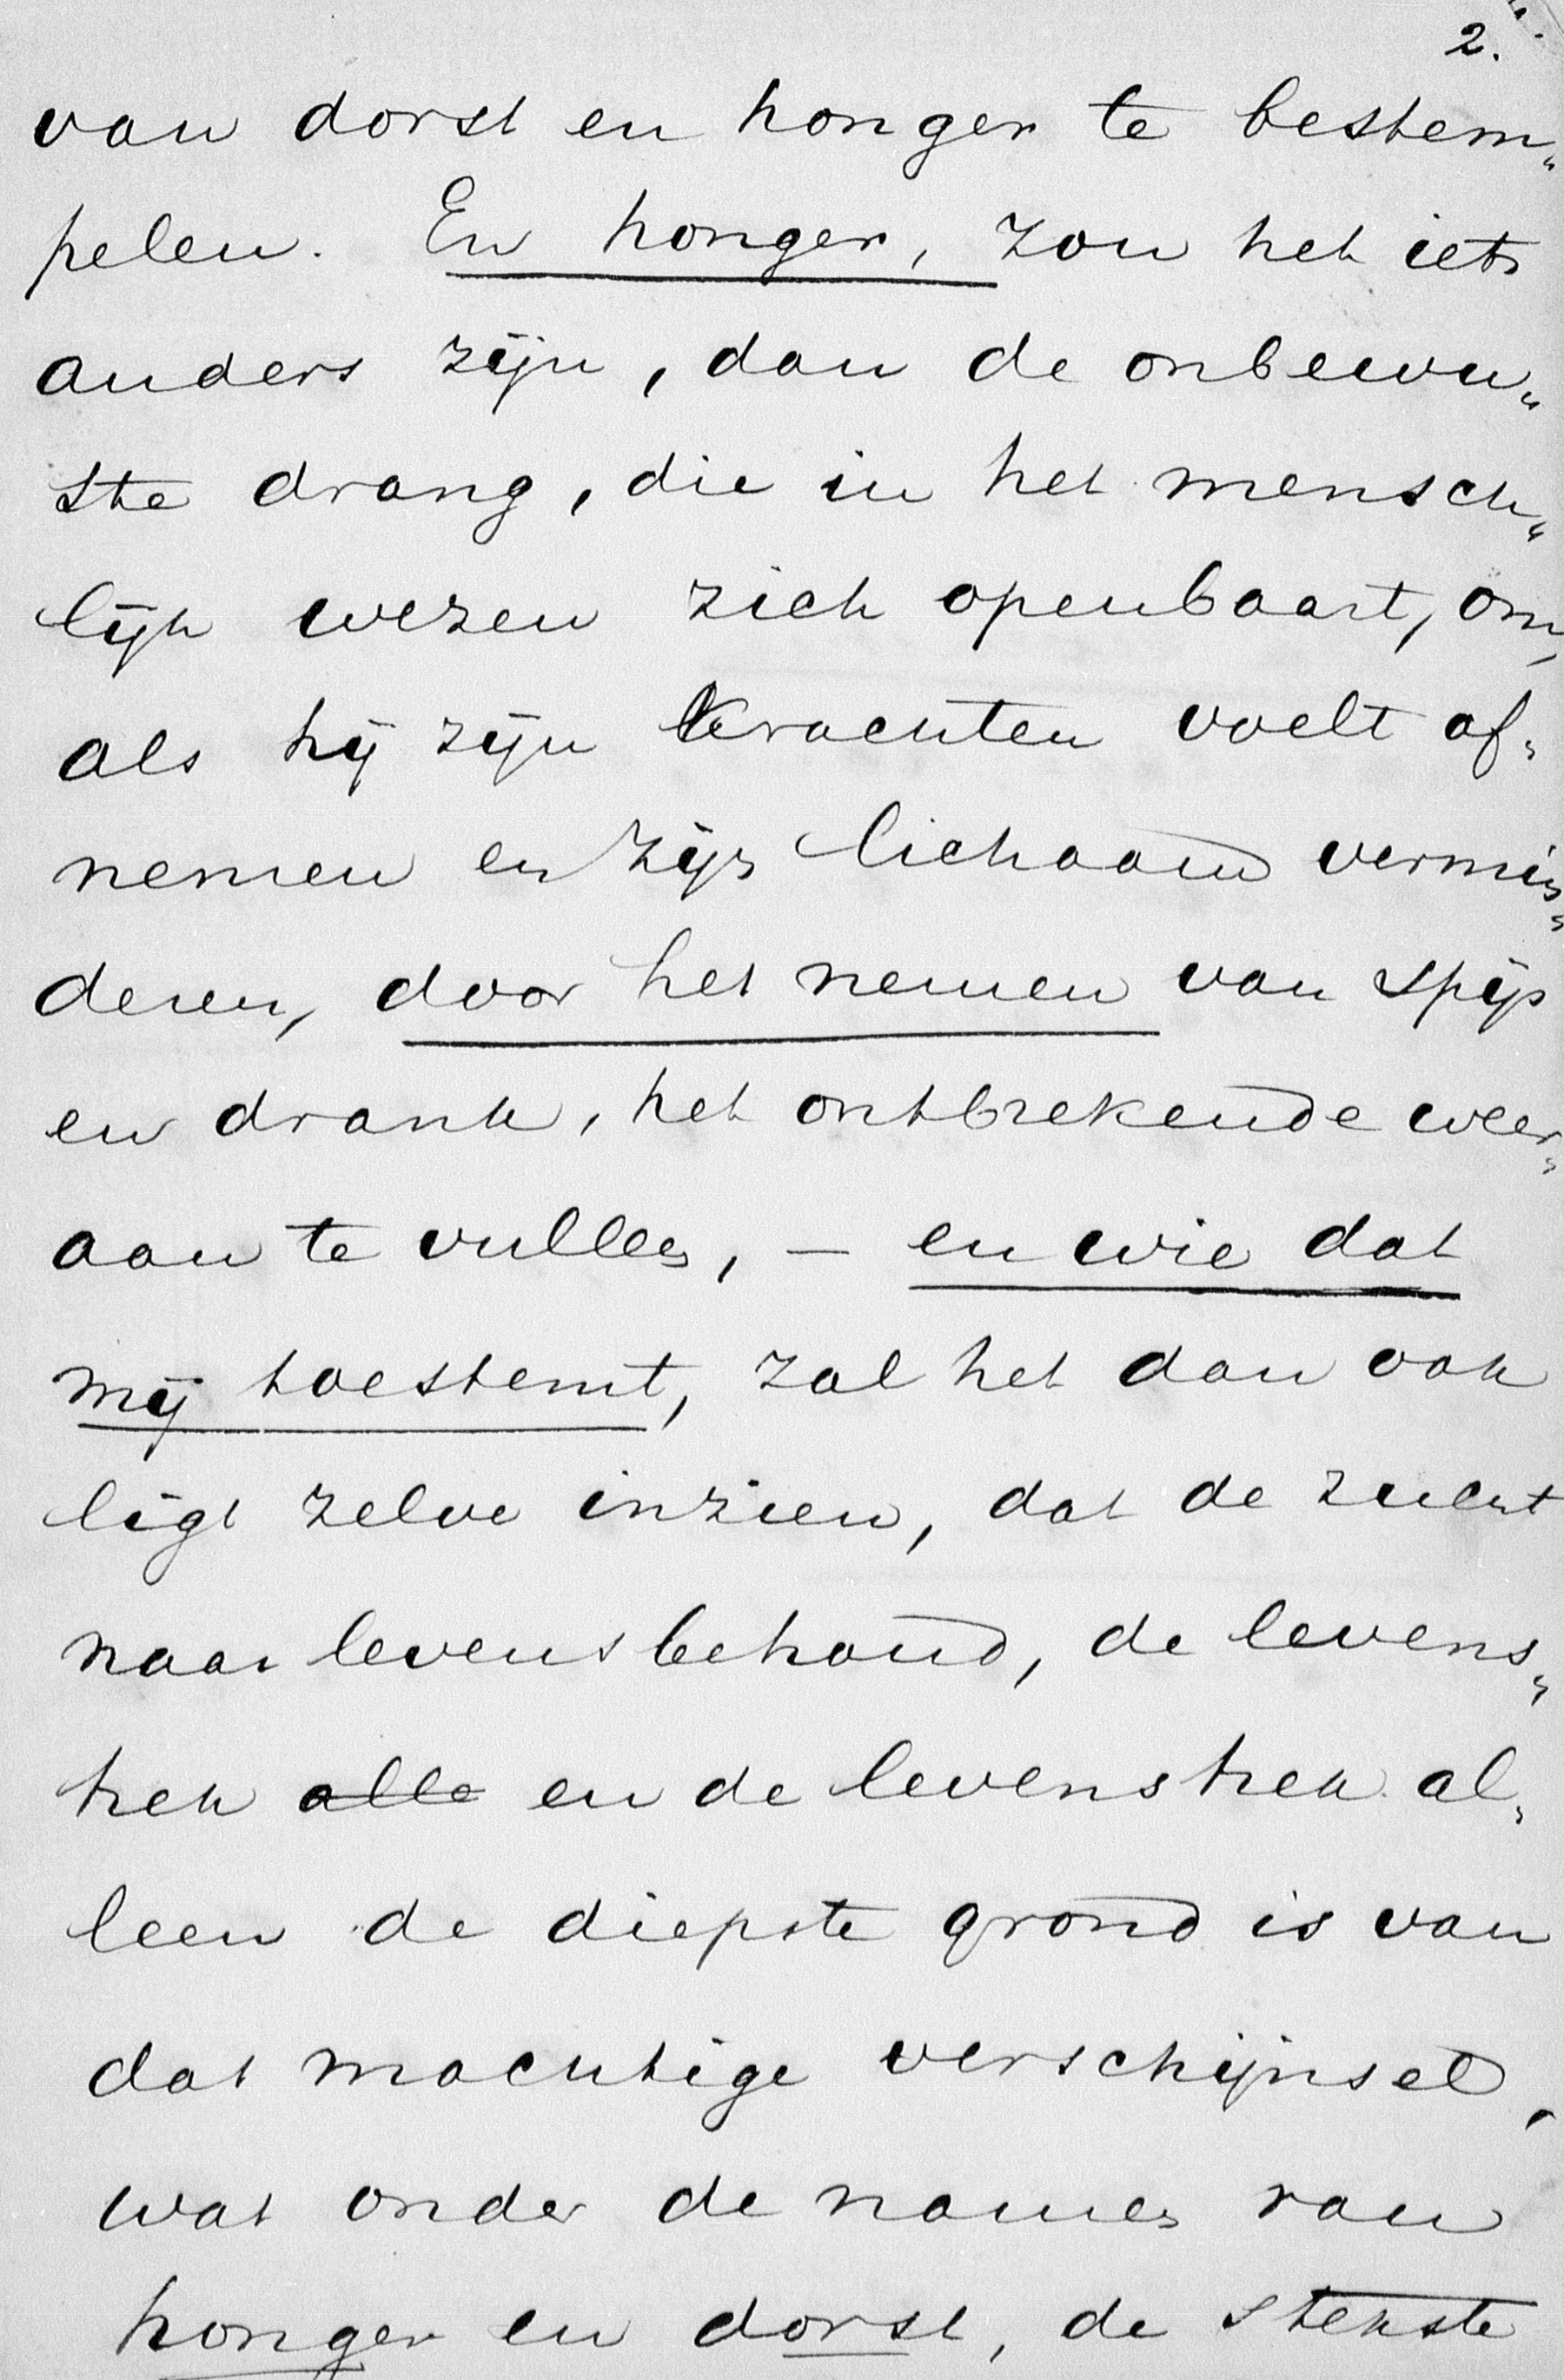 2.
van dorst en honger te bestem„
pelen. En honger, zou het iets
anders zijn, dan de onbewu„
ste drang, die in het mensch„
lijk wezen zich openbaart, om,
als hij zijn krachten voelt af„
nemen en zijn lichaam vermin„
deren, door het nemen van spijs
en drank, het ontbrekende weer„
aan te vullen, — en wie dat
mij toestemt, zal het dan ook
ligt zelve inzien, dat de zucht
naar levensbehoud, de levens„
trek alle en de levenstrek al„
leen de diepste grond is van
dat machtige verschijnsel,
wat onder de namen van
honger en dorst, de sterkste